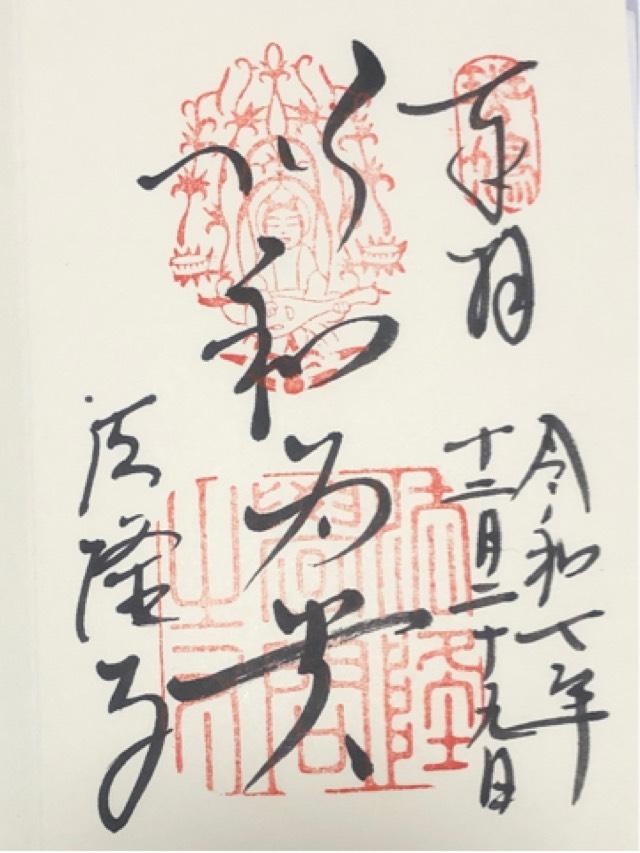 奉拝
令和七年
十二月二十九日
以和為貴
法隆寺